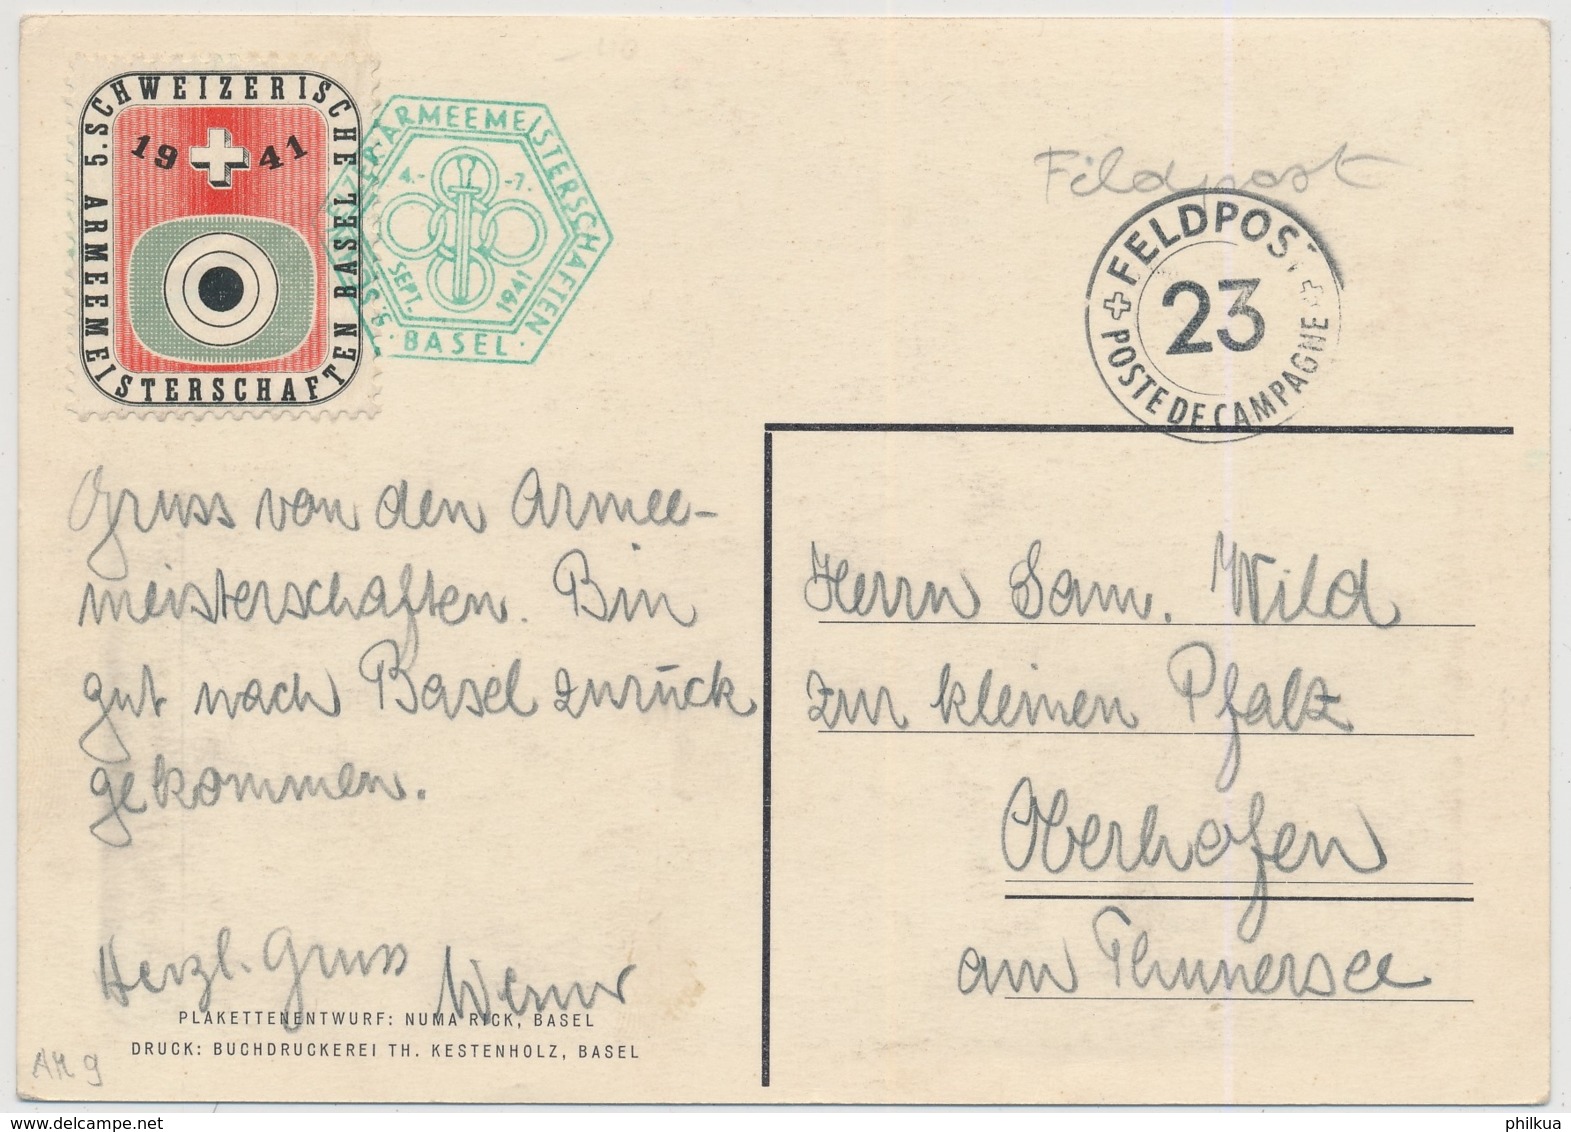 5. SCHWEIZERISCHE ARMEEMEISTERSCHAFTEN BASEL
19 41
ARMEEMEISTERSCHAFTEN
4.- -7.
SEPT. 1941
· BASEL ·
Feldpost
FELDPOST
23
POSTE DE CAMPAGNE
Gruss von den Armee-
meisterschaften. Bin
gut nach Basel zurück
gekommen.
Herzl. Gruss
Werner
Herrn Sam. Wild
zur kleinen Pfalz
Oberhofen
am Thunersee
PLAKETTENENTWURF: NUMA RICK, BASEL
DRUCK: BUCHDRUCKEREI TH. KESTENHOLZ, BASEL
AM 9
philkua